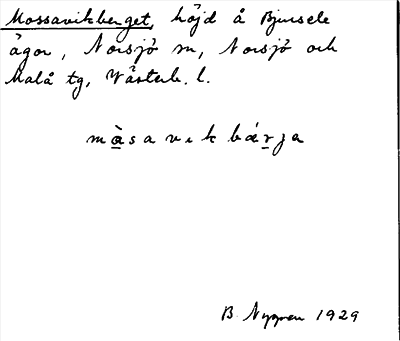 Mossavikberget, höjd å Bjursele
ägor, Norsjö sn, Norsjö och
Malå tg, Västerb. l.
mɑ̀savɩkbárja
B. Nygren 1929